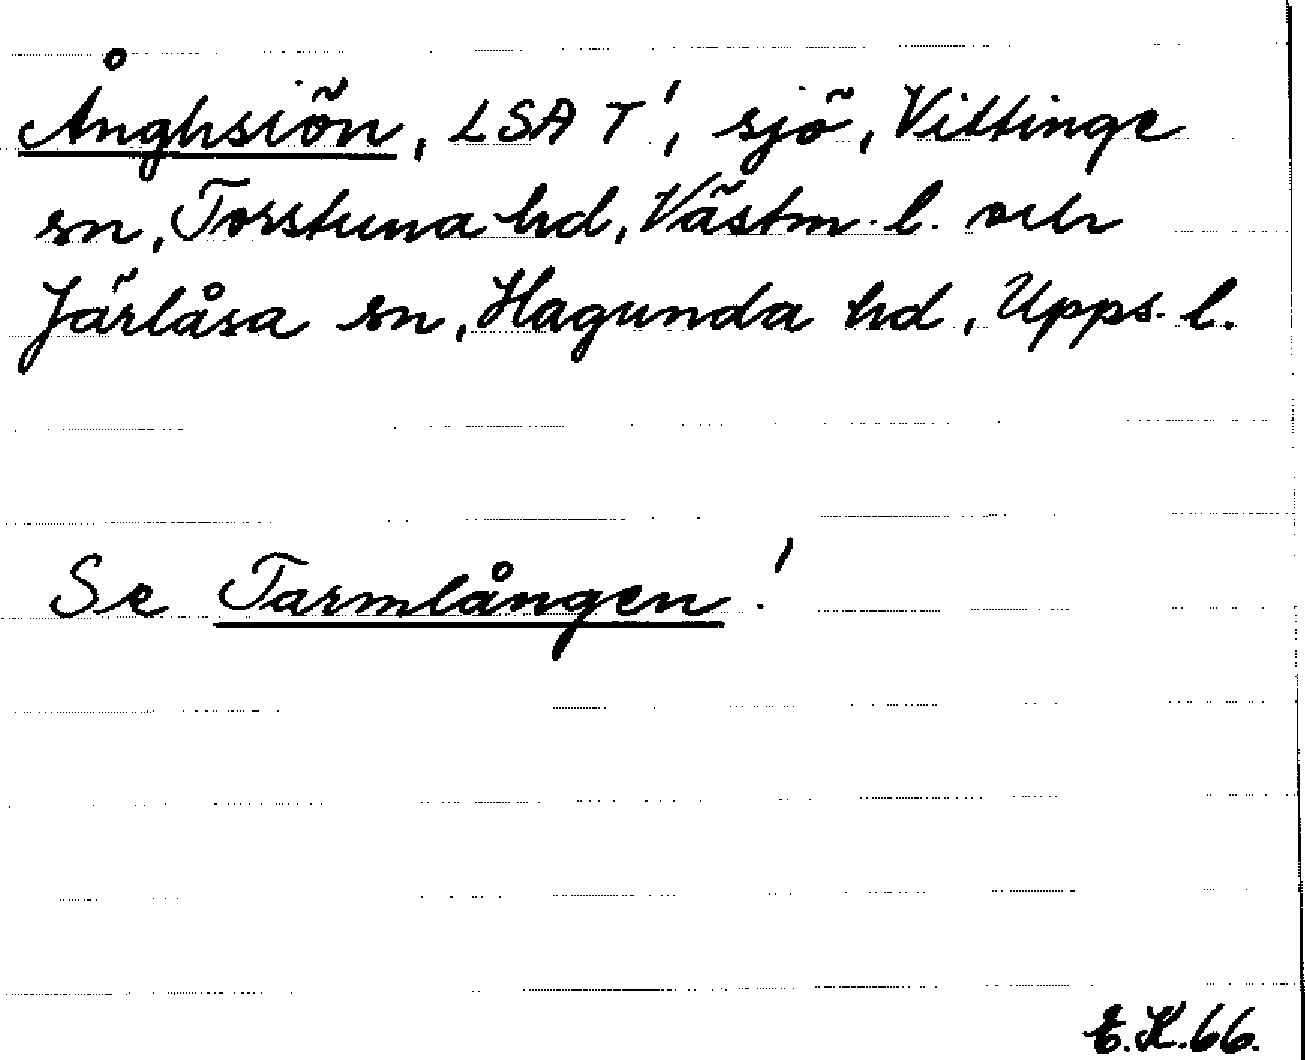 Ånghsiön, LSA T¹, sjö, Vittinge
sn, Torstuna hd, Västm. l. och
Järlåsa sn, Hagunda hd, Upps. l.
Se Tarmlången!
E.K.66.